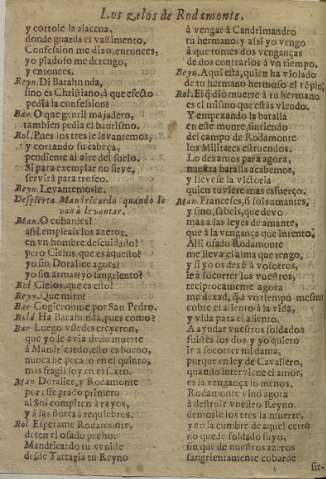 Los zelos de Rodamonte.
y cortole la alacena,
donde guarda el vastimento,
Confession me dixo, entonces,
yo piadoso me detengo,
y entonces.
Reyn. Di Barahunda,
sino es Christiano, à que efecto
pedia la confession?
Bar. O que gentil majadero,
tambien pedia el bautismo.
Rol. Pues los tres le levantemos,
y cortando su cabeça,
pendiente al aire del suelo.
Si para exemplar no sirve,
servirà para trofeo.
Reyn. Levantemosle.
Despierta Mandricardo quando le
van à levantar.
Man. O cobardes!
assi empleais los azeros,
en vn hombre descuidado!
pero Cielos, que es aquesto?
yo sin Doralice agora?
yo sin armas? yo sangriento?
Rol. Cielos que es esto!
Reyn. Que miro!
Bar. Cogieronme por San Pedro.
Rold. Ha Barahunda, pues como?
Bar. Luego vstedes creyeron,
que yo le avia dado muerte
à Mandricardo, esso es bueno,
nunca he pecado en el quinto,
mas fragil soy en el sexto.
Man. Doralice, y Rodamonte
por esse prado primero
al Sol compiten à rayos,
y à las flores à requiebros.
Rol. Espereme Rodamonte,
deten el osado pecho:
Mandricardo tu veniste
desde Tartaria tu Reyno
à vengar à Candrimandro
tu hermano, y assi yo vengo
à que tomes dos venganças
de dos contrarios à vn tiempo.
Reyn. Aqui està, quien ha violado
de tu hermano hermoso el templo,
Rol. El que diò muerte à tu hermano
es el mismo que estàs viendo.
Y empezando la batalla
en este monte, siguiendo
del campo de Rodamonte
los Militares estruendos.
Lo dexamos para agora,
nuestra batalla acabemos,
y lleve se la victoria
quien tuviere mas esfuerço.
Man. Franceses, si sois amantes,
y sino, sabeis, que devo
mas à las leyes de amante,
que à la vengança que intento.
Assi osado Rodamonte
me lleva el alma que tengo,
y si yo os dexè à vosotros,
ir à socorrer los vuestros,
reciprocamente agora
me dexad, que à vn tiempo mesmo
cobre el aliento à la vida,
y vida para el aliento.
A ayudar vuestros soldados
fuisteis los dos, y yo quiero
ir à socorrer mi dama,
porque en ley de Cavallero,
quando interviene el amor,
es la vengança lo menos,
Rodamonte vino agora
à destruir vuestro Reyno,
demosle los tres la muerte,
y en la cumbre de aquel cerro
no quede soldado suyo,
sin que de nuestros azeros
sangrientamente cobarde
sir-